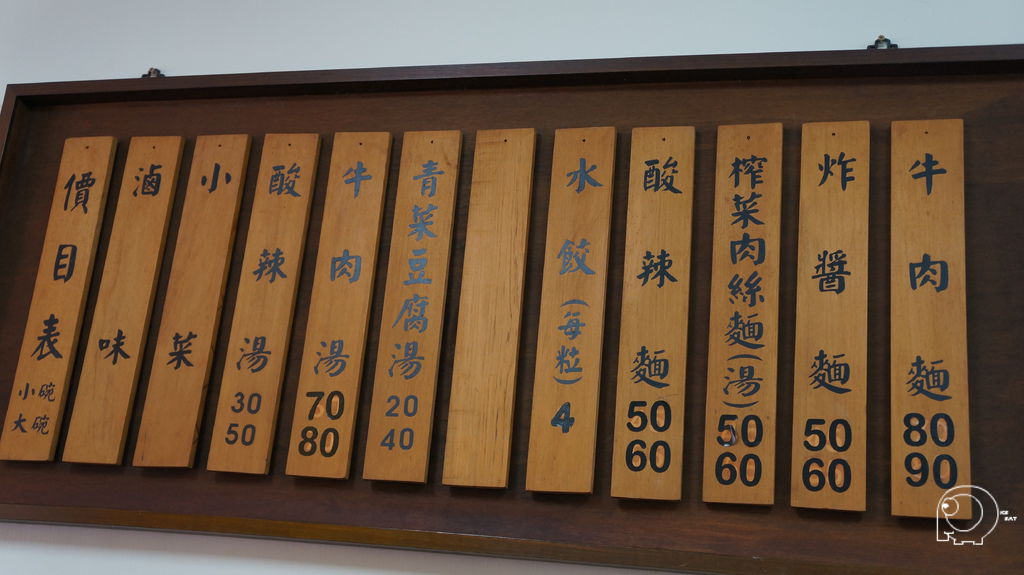 牛肉麵 80 90
炸醬麵 50 60
榨菜肉絲麵(湯) 50 60
酸辣麵 50 60
水餃(每粒) 4
青菜豆腐湯 20 40
牛肉湯 70 80
酸辣湯 30 50
小菜
滷味
價目表 小碗 大碗
ICE EAT